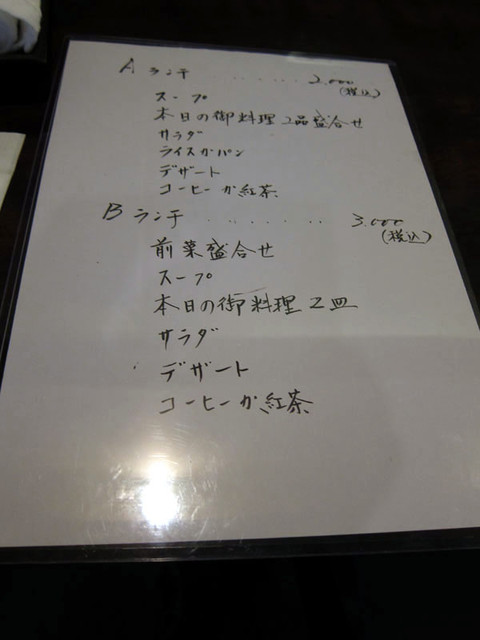 A ランチ ・・・・・・ 2.000
(税込)
スープ
本日の御料理2品盛合せ
サラダ
ライスかパン
デザート
コーヒーか紅茶
B ランチ ・・・・・・ 3.000
(税込)
前菜盛合せ
スープ
本日の御料理 2皿
サラダ
デザート
コーヒーか紅茶